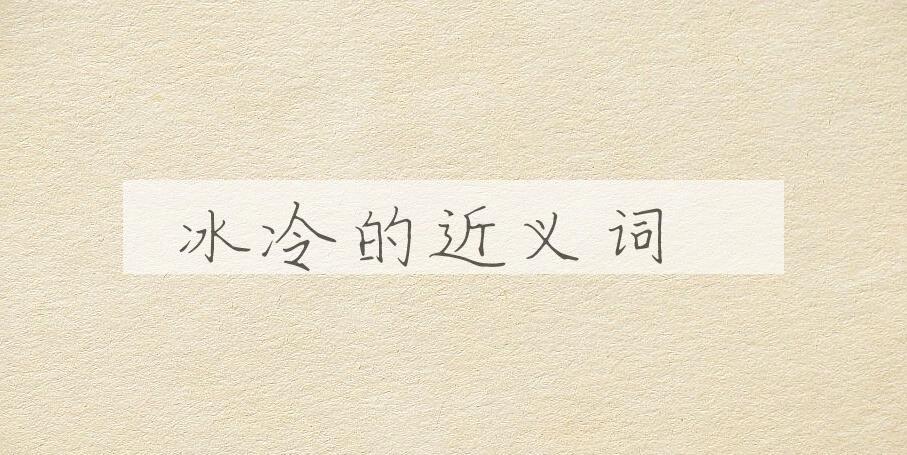 冰冷的近义词